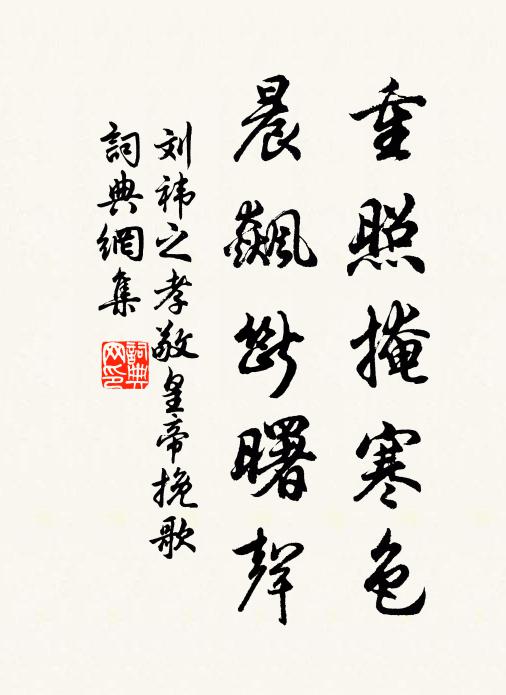 重照掩寒色
晨飙斷曙聲
刘祎之孝敬皇帝挽歌
詞典網集
詞典网印